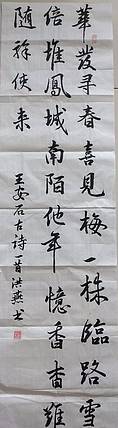 華發寻春喜見梅一株臨路雪
倍堆鳳城南陌他年憶香杳難
随驿使来
王安石古詩一首洪燕书